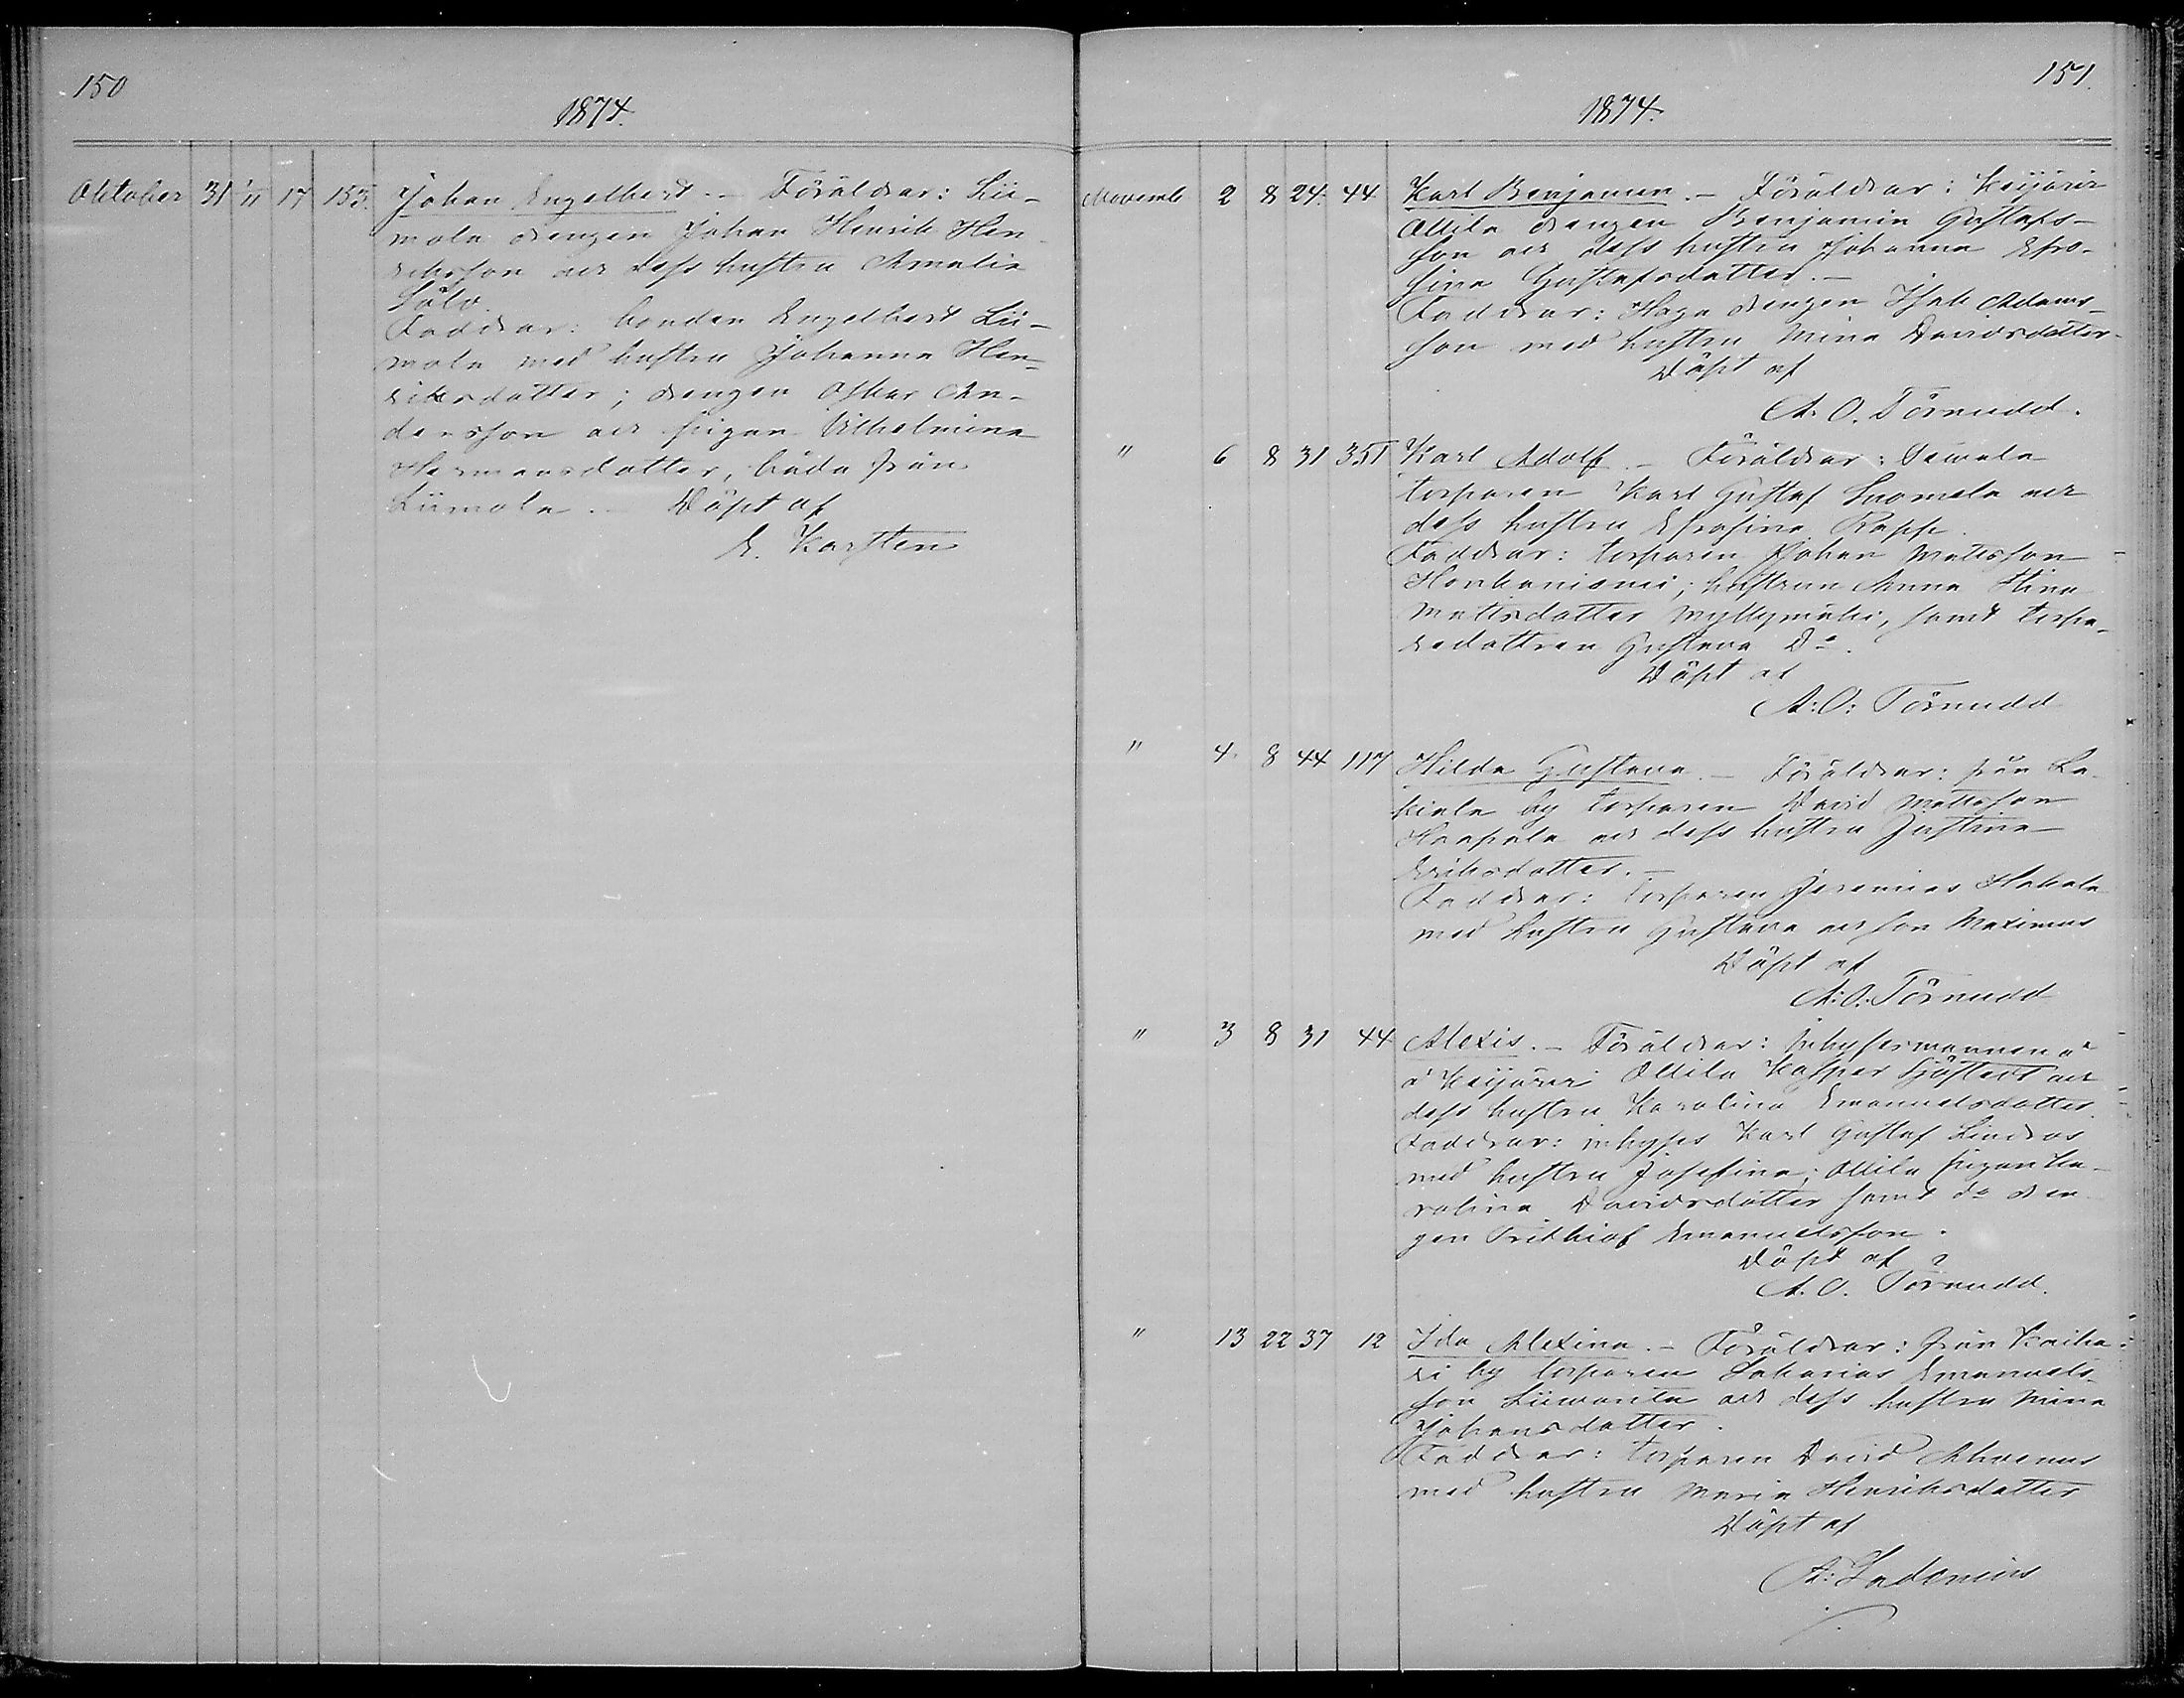 150
1874.
Oktober 31 1/11 17 153. Johan Engelbert. – Föräldrar: Lii-
mola drengen Johan Henrik Hen-
riksson och dess hustru Amalia
Löfv.
Faddrar: bonden Engelbert Lii-
mola med hustru Johanna Hen-
riksdotter; drengen Oskar An-
dersson och pigan Vilhelmina
Hermansdotter, båda från
Liimola. – Döpt af
E. Karsten
151.
1874.
Novemb 2 8 24. 44 Karl Benjamin. – Föräldrar: Keijärvi
Ollila drengen Benjamin Gustafs-
son och dess hustru Johanna Efro-
sina Gustafsdotter. –
Faddrar: Haga drengen Isak Adams-
son med hustru Mina Davidsdotter.
Döpt af
A. O. Törnudd.
" 6 8 31 351 Karl Adolf. – Föräldrar:
torparen Karl Gustaf Suomela och
dess hustru Efrosina Rapp.
Faddrar: torparen Johan Mattsson
Honkaniemi; hustrun Anna Stina
Mattsdotter Myllymäki, samt torpa-
redottren Gustava Do.
Döpt af
A: O: Törnudd
" 4 8 44 117 Hilda Gustava. – Föräldrar: från La-
kiala by torparen David Mattsson
Haapala och dess hustru Justina
Eriksdotter. –
Faddrar: torparen Jeremias Hakala
med hustru Gustava och son Maximus
Döpt af
A: O. Törnudd
" 3 8 31 44 Alexis. – Föräldrar: inhysesmannen
å Keijärvi Ollila Kasper Sjöstedt och
dess hustru Karolina Emanuelsdotter.
Faddrar: inhyses Karl Gustaf Lindros
med hustru Josefina; Ollila pigan Ka-
rolina Davidsdotter samt do dren-
gen Frithiof Emanuelsson.
Döpt af
A. O. Törnudd.
" 13 22 37 12 Ida Alexina. – Föräldrar: från Kaiha-
ri by torparen Sakarias Emanuels-
son Liuvanta och dess hustru Mina
Johansdotter.
Faddrar: torparen David Ahvenus
med hustru Maria Henriksdotter
Döpt af
A: Ladenius